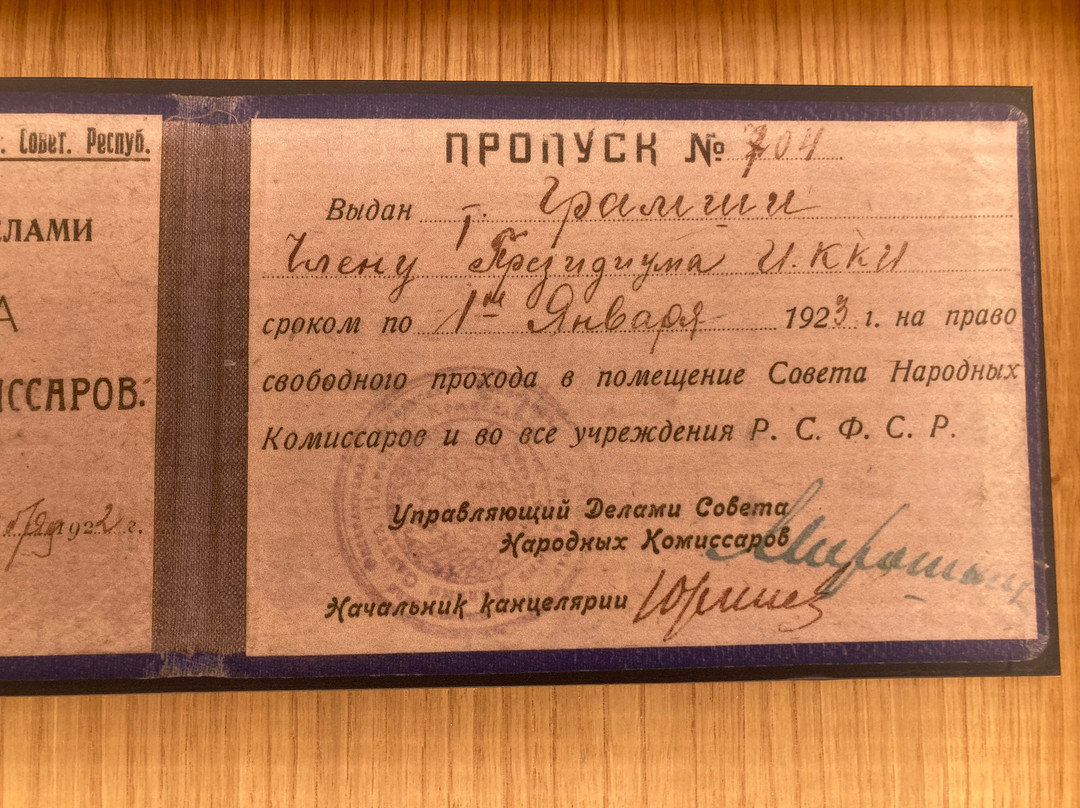 . Совет. Респуб.
ЕЛАМИ
А
ИССАРОВ.
1922 г.
ПРОПУСК № 704
Выдан т. Грамши
Члену Президиума И.ККИ
сроком по 1ое Января 1923 г. на право
свободного прохода в помещение Совета Народных
Комиссаров и во все учреждения Р. С. Ф. С. Р.
Управляющий Делами Совета
Народных Комиссаров
Начальник канцелярии